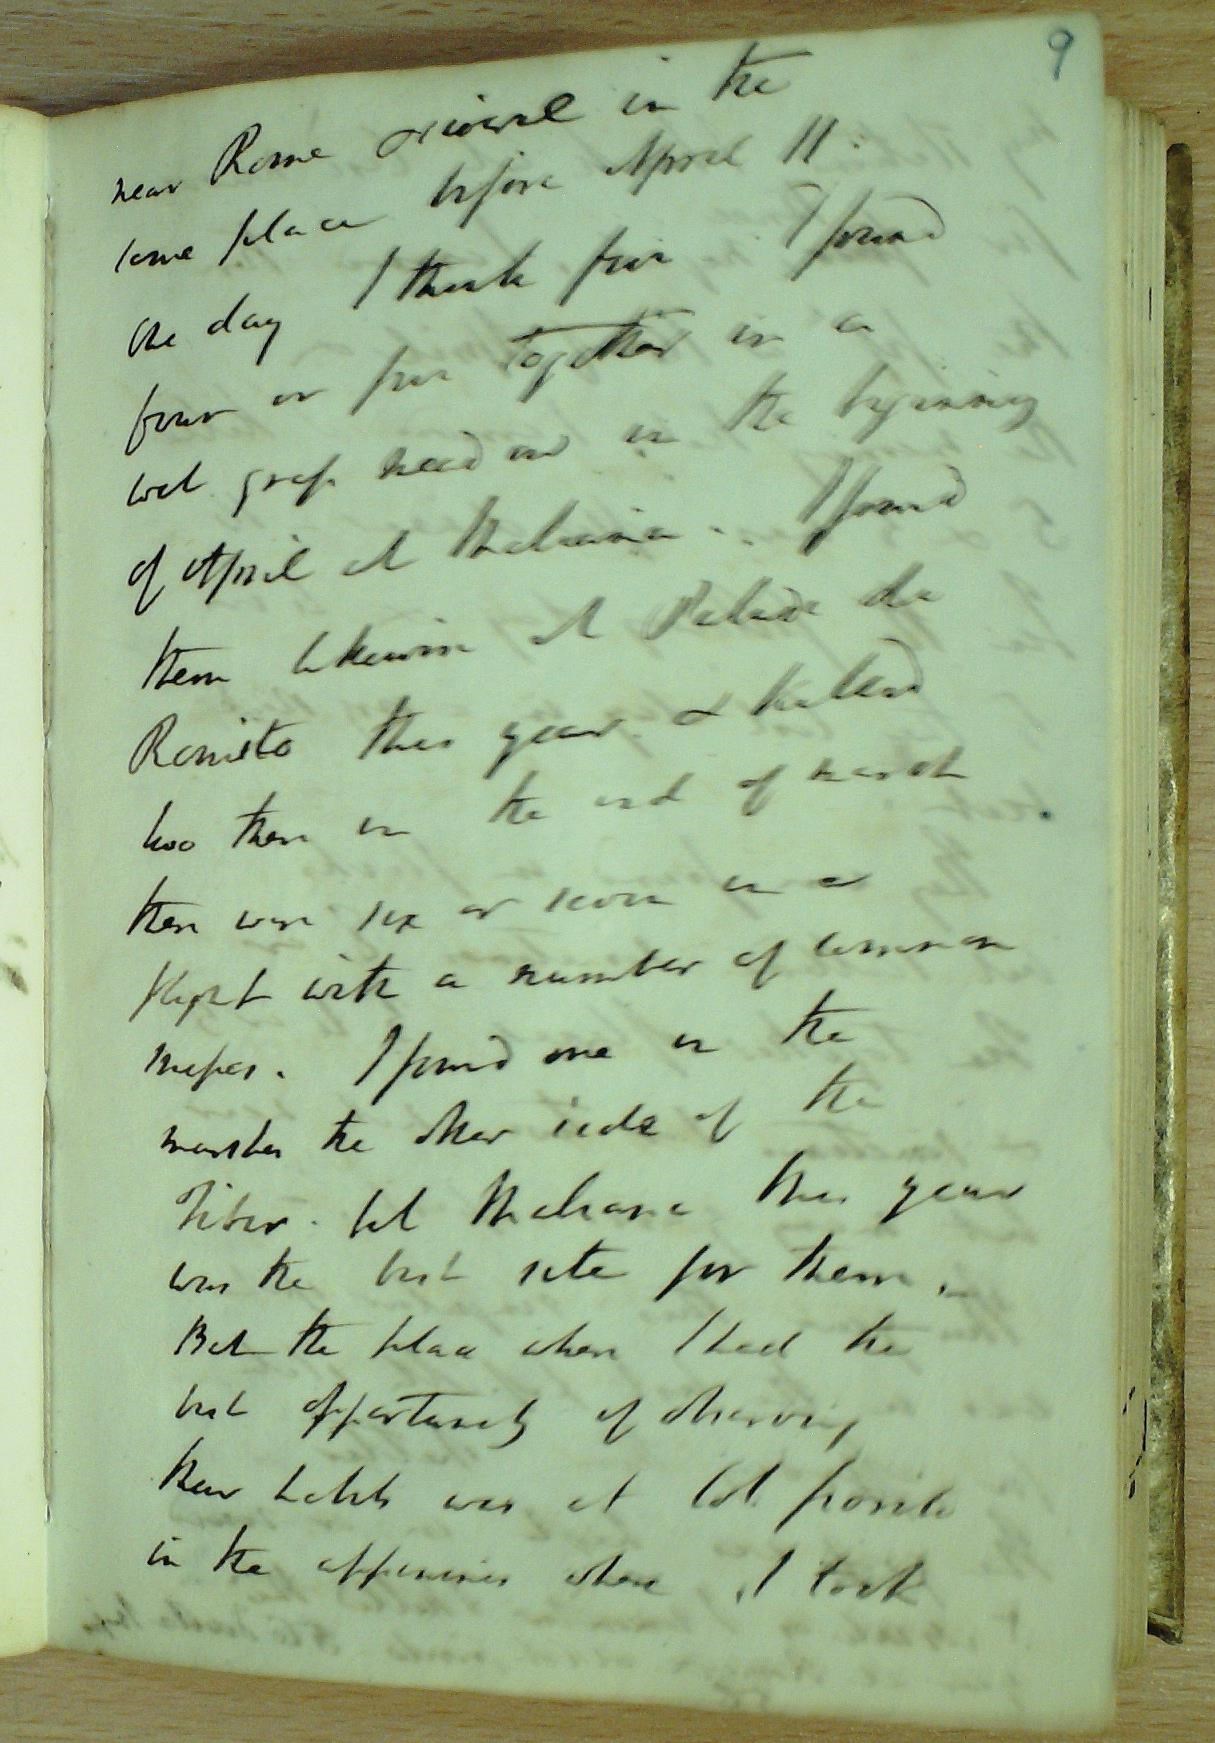 9
near Rome several in the
same place before April 11.
one day I think five I found
four or five together in a
wet grass meadow in the beginning
of April at
them likewise at
this year & killed
two there in the end of march
there were six or seven in a
flight with a number of common
snipes. I found one in the
marshes the other side of the
Tiber. this year
was the best site for them.
But the place where I had the
best oppertunity of observing
their habits was at
in the where I took